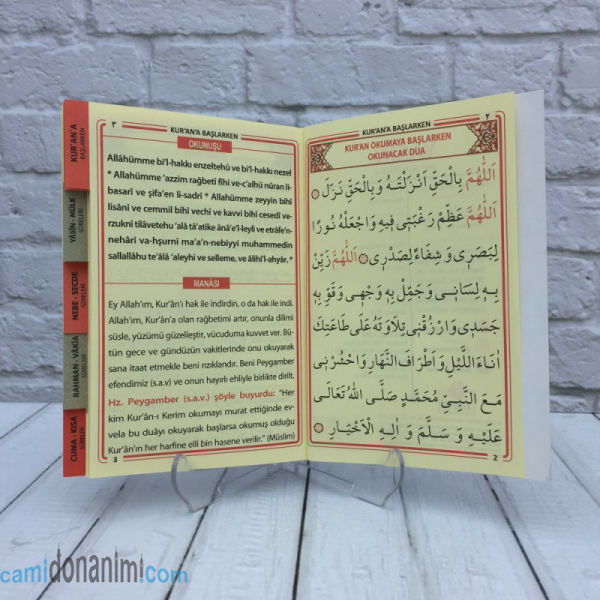 KUR'AN'A BAŞLARKEN
٢
KUR'AN OKUMAYA BAŞLARKEN
OKUNACAK DUA
اَللّٰهُمَّ بِالْحَقِّ اَنْزَلْتَهُ وَبِالْحَقِّ نَزَلَ
اَللّٰهُمَّ عَظِّمْ رَغْبَتٖى فٖيهِ وَاجْعَلْهُ نُورًا
لِبَصَرٖى وَشِفَاءً لِصَدْرٖى اَللّٰهُمَّ زَيِّنْ
بِهٖ لِسَانٖى وَجَمِّلْ بِهٖ وَجْهٖى وَقَوِّ بِهٖ
جَسَدٖى وَارْزُقْنٖى تِلَاوَتَهُ عَلٰى طَاعَتِكَ
اٰنَاءَ اللَّيْلِ وَاَطْرَافَ النَّهَارِ وَاحْشُرْنٖى
مَعَ النَّبِىِّ مُحَمَّدٍ صَلَّى اللّٰهُ تَعَالٰى
عَلَيْهِ وَسَلَّمَ وَاٰلِهِ الْاَخْيَارِ
2
٣
KUR'AN'A BAŞLARKEN
OKUNUŞU
Allâhümme bi'l-hakkı enzeltehû ve bi'l-hakkı nezel
* Allahümme 'azzim rağbetî fîhi ve-c'alhü nûran li-
basarî ve şifa'en li-sadrî * Allahümme zeyyin bihî
lisânî ve cemmil bihî vechî ve kavvi bihî cesedî ve-
rzuknî tilâvetehu 'alâ tâ'atike ânâe'l-leyli ve etrâfe'n-
nehâri va-hşurnî ma'a'n-nebiyyi muhammedin
sallallâhu te'âlâ 'aleyhi ve selleme, ve âlihi'l-ahyâr. *
MANÂSI
Ey Allah'ım, Kur'ân'ı hak ile indirdin, o da hak ile indi.
Allah'ım, Kur'an'a olan rağbetimi artır, onunla dilimi
süsle, yüzümü güzelleştir, vücuduma kuvvet ver. Bü-
tün gece ve gündüzün vakitlerinde onu okuyarak
sana itaat etmekle beni rızıklandır. Beni Peygamber
efendimiz (s.a.v) ve onun hayırlı ehliyle birlikte dirilt.
Hz. Peygamber (s.a.v.) şöyle buyurdu: "Her
kim Kur'ân-ı Kerim okumayı murat ettiğinde ev-
vela bu duâyı okuyarak başlarsa okumuş olduğu
Kur'ân'ın her harfine elli bin hasene verilir." (Müslim)
3
KUR'AN'A
BAŞLARKEN
YÂSÎN - MÜLK
SÛRELERİ
NEBE - SECDE
SÛRELERİ
RAHMAN - VÂKIA
SÛRELERİ
CUMA - KISA
SÛRELER
camidonanimi.com